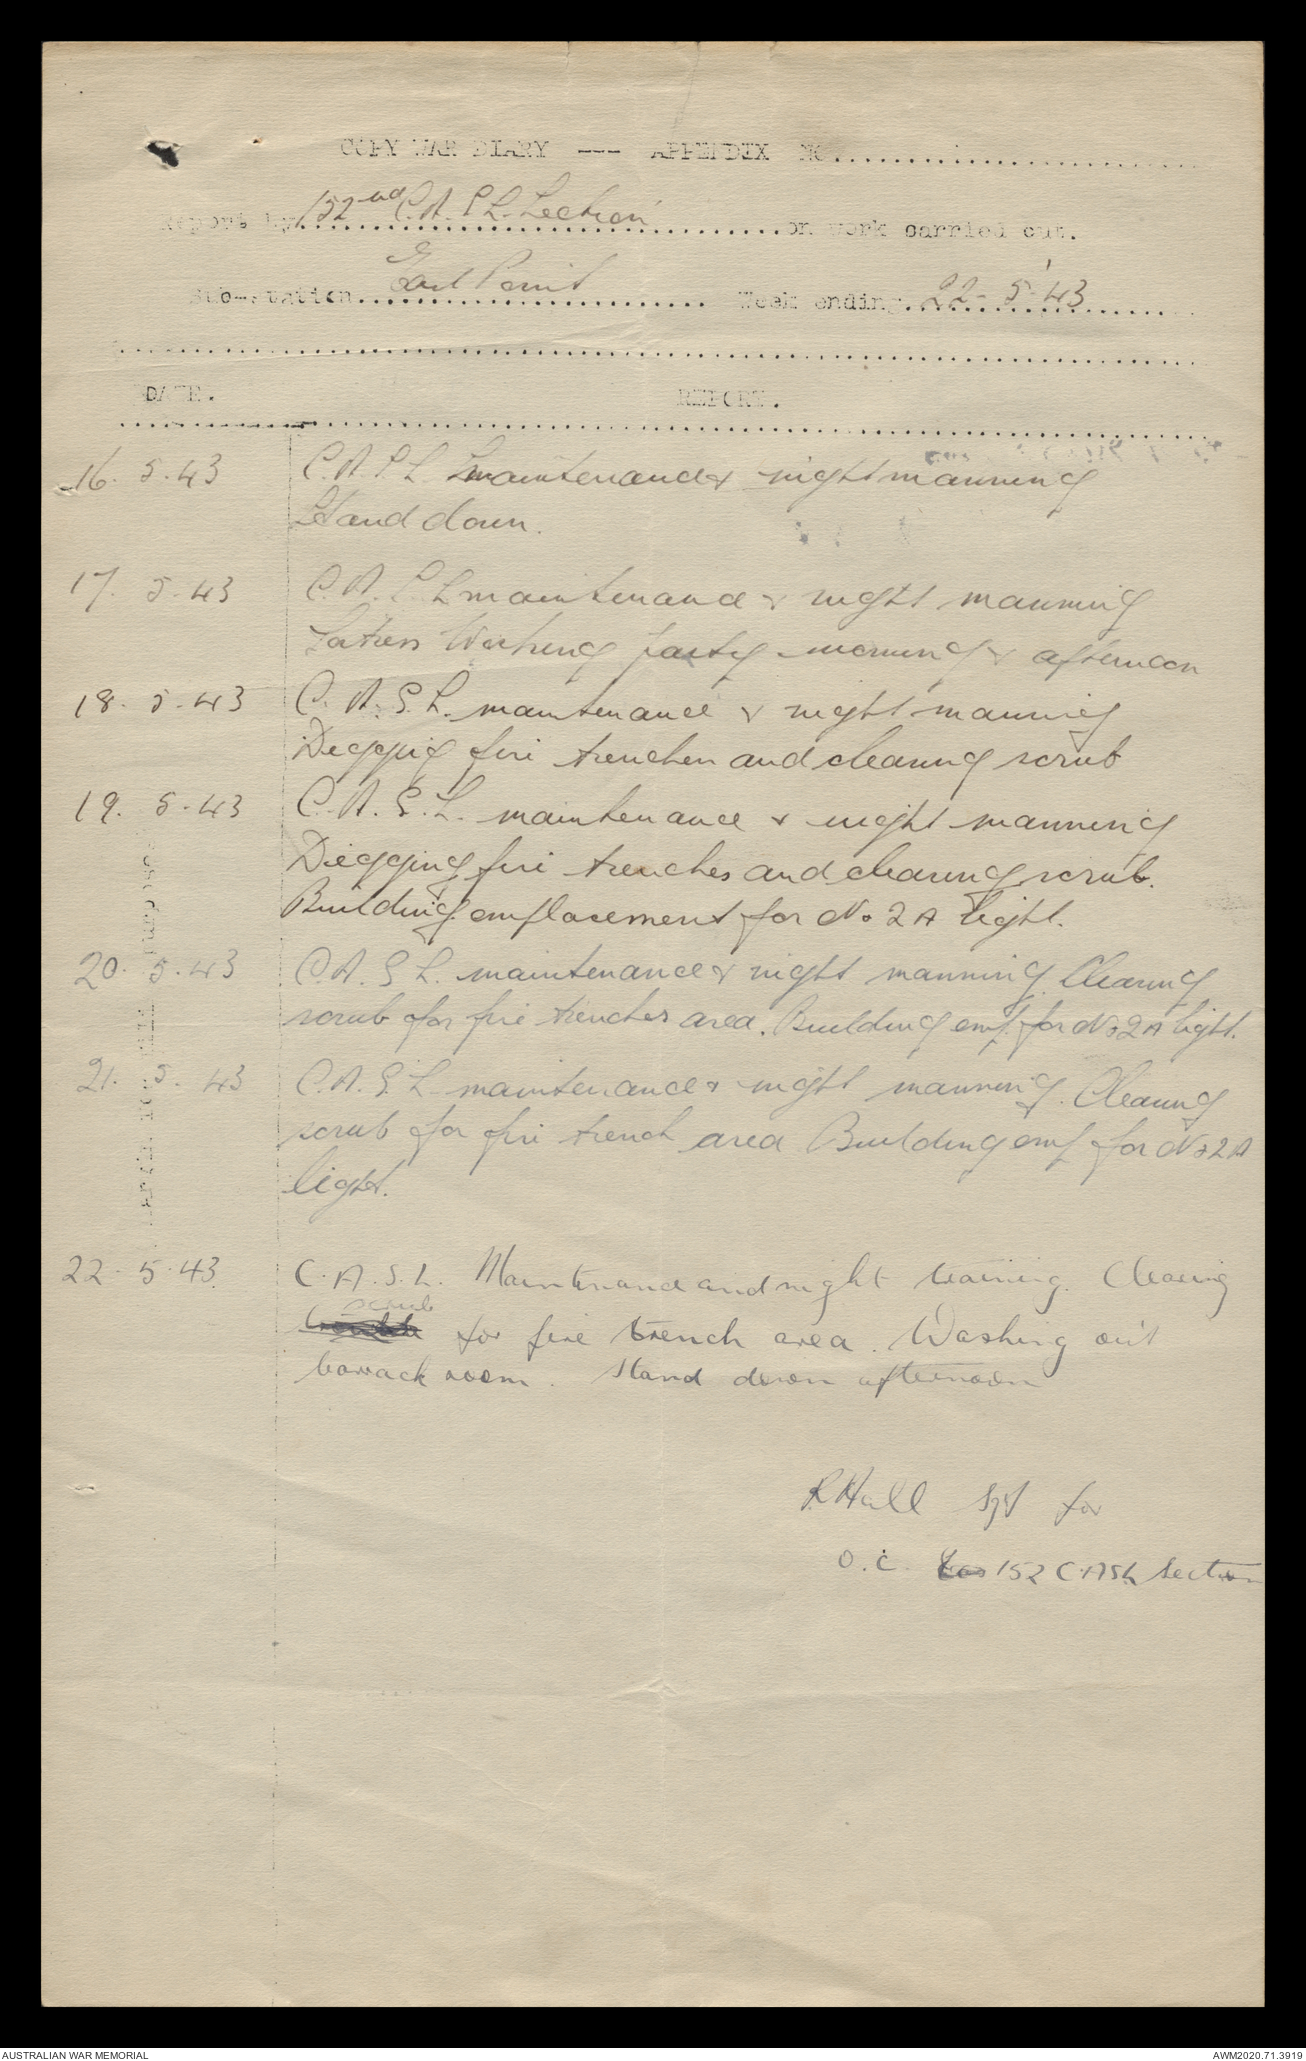 COPY WAR DIARY --- APPENDIX NO..............................
Report by 152nd C.A.S.L. Section on work carried out.
Sub-station East Point Week ending 22-5-43
DATE. REPORT.
16. 5. 43 C.A.S.L. maintenance & night manning
Stand down.
17. 5. 43 C.A.S.L maintenance & night manning
Working party morning & afternoon
18. 5. 43 C.A.S.L. maintenance & night manning
Digging fire trenches and clearing scrub
19. 5. 43 C.A.S.L. maintenance & night manning
Digging fire trenches and clearing scrub.
Building emplacement for No 2A light.
20. 5. 43 C.A.S.L. maintenance & night manning. Clearing
scrub for fire trenches area. Building emp. for No 2A light.
21. 5. 43 C.A.S.L maintenance & night manning. Clearing
scrub for fire trench area Building emp for No 2A
light.
22. 5. 43 C.A.S.L. Maintenance and night training. Clearing
scrub
for fire trench area. Washing out
barrack room. Stand down afternoon
R Hall Sgt for
O.C. 152 C.A.S.L Section
AUSTRALIAN WAR MEMORIAL AWM2020.71.3919